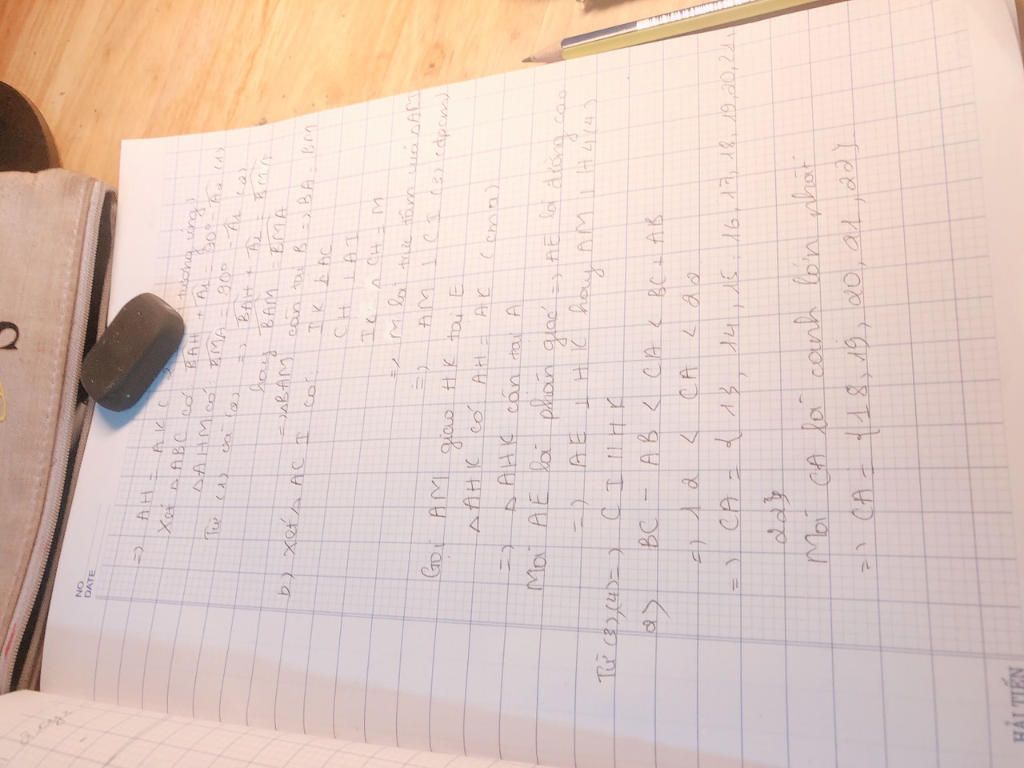 NO
DATE
=) AH = AK C tương ứng)
Xét △ABC có BAM + A1 = 90° - A2 (1)
△AHM có BMA = 90° - A1 (2)
Từ (1) và (2) =) BAH + A2 = BMA
hay BAM = BMA
=) △BAM cân tại B =) BA = BM
b) Xét △ AC I có IK ⊥ AC
CH ⊥ AI
IK ∩ CH = M
=) M là trực tâm của △API
=) AM ⊥ C I (3) (đpcm)
Gọi AM giao HK tại E
△AHK có AH = AK (cma)
=) △AHK cân tại A
Mài AE là phân giác =) AE là đường cao
=) AE ⊥ HK hay AM ⊥ HK(4)
Từ (3),(4) =) C I // HK
2) BC - AB < CA < BC + AB
=) 12 < CA < 22
=) CA = { 13, 14, 15, 16, 17, 18, 19, 20, 21,
22}
Mài CA là cạnh lớn nhất
=) CA = {18, 19, 20, 21, 22}
HẢI TIẾN